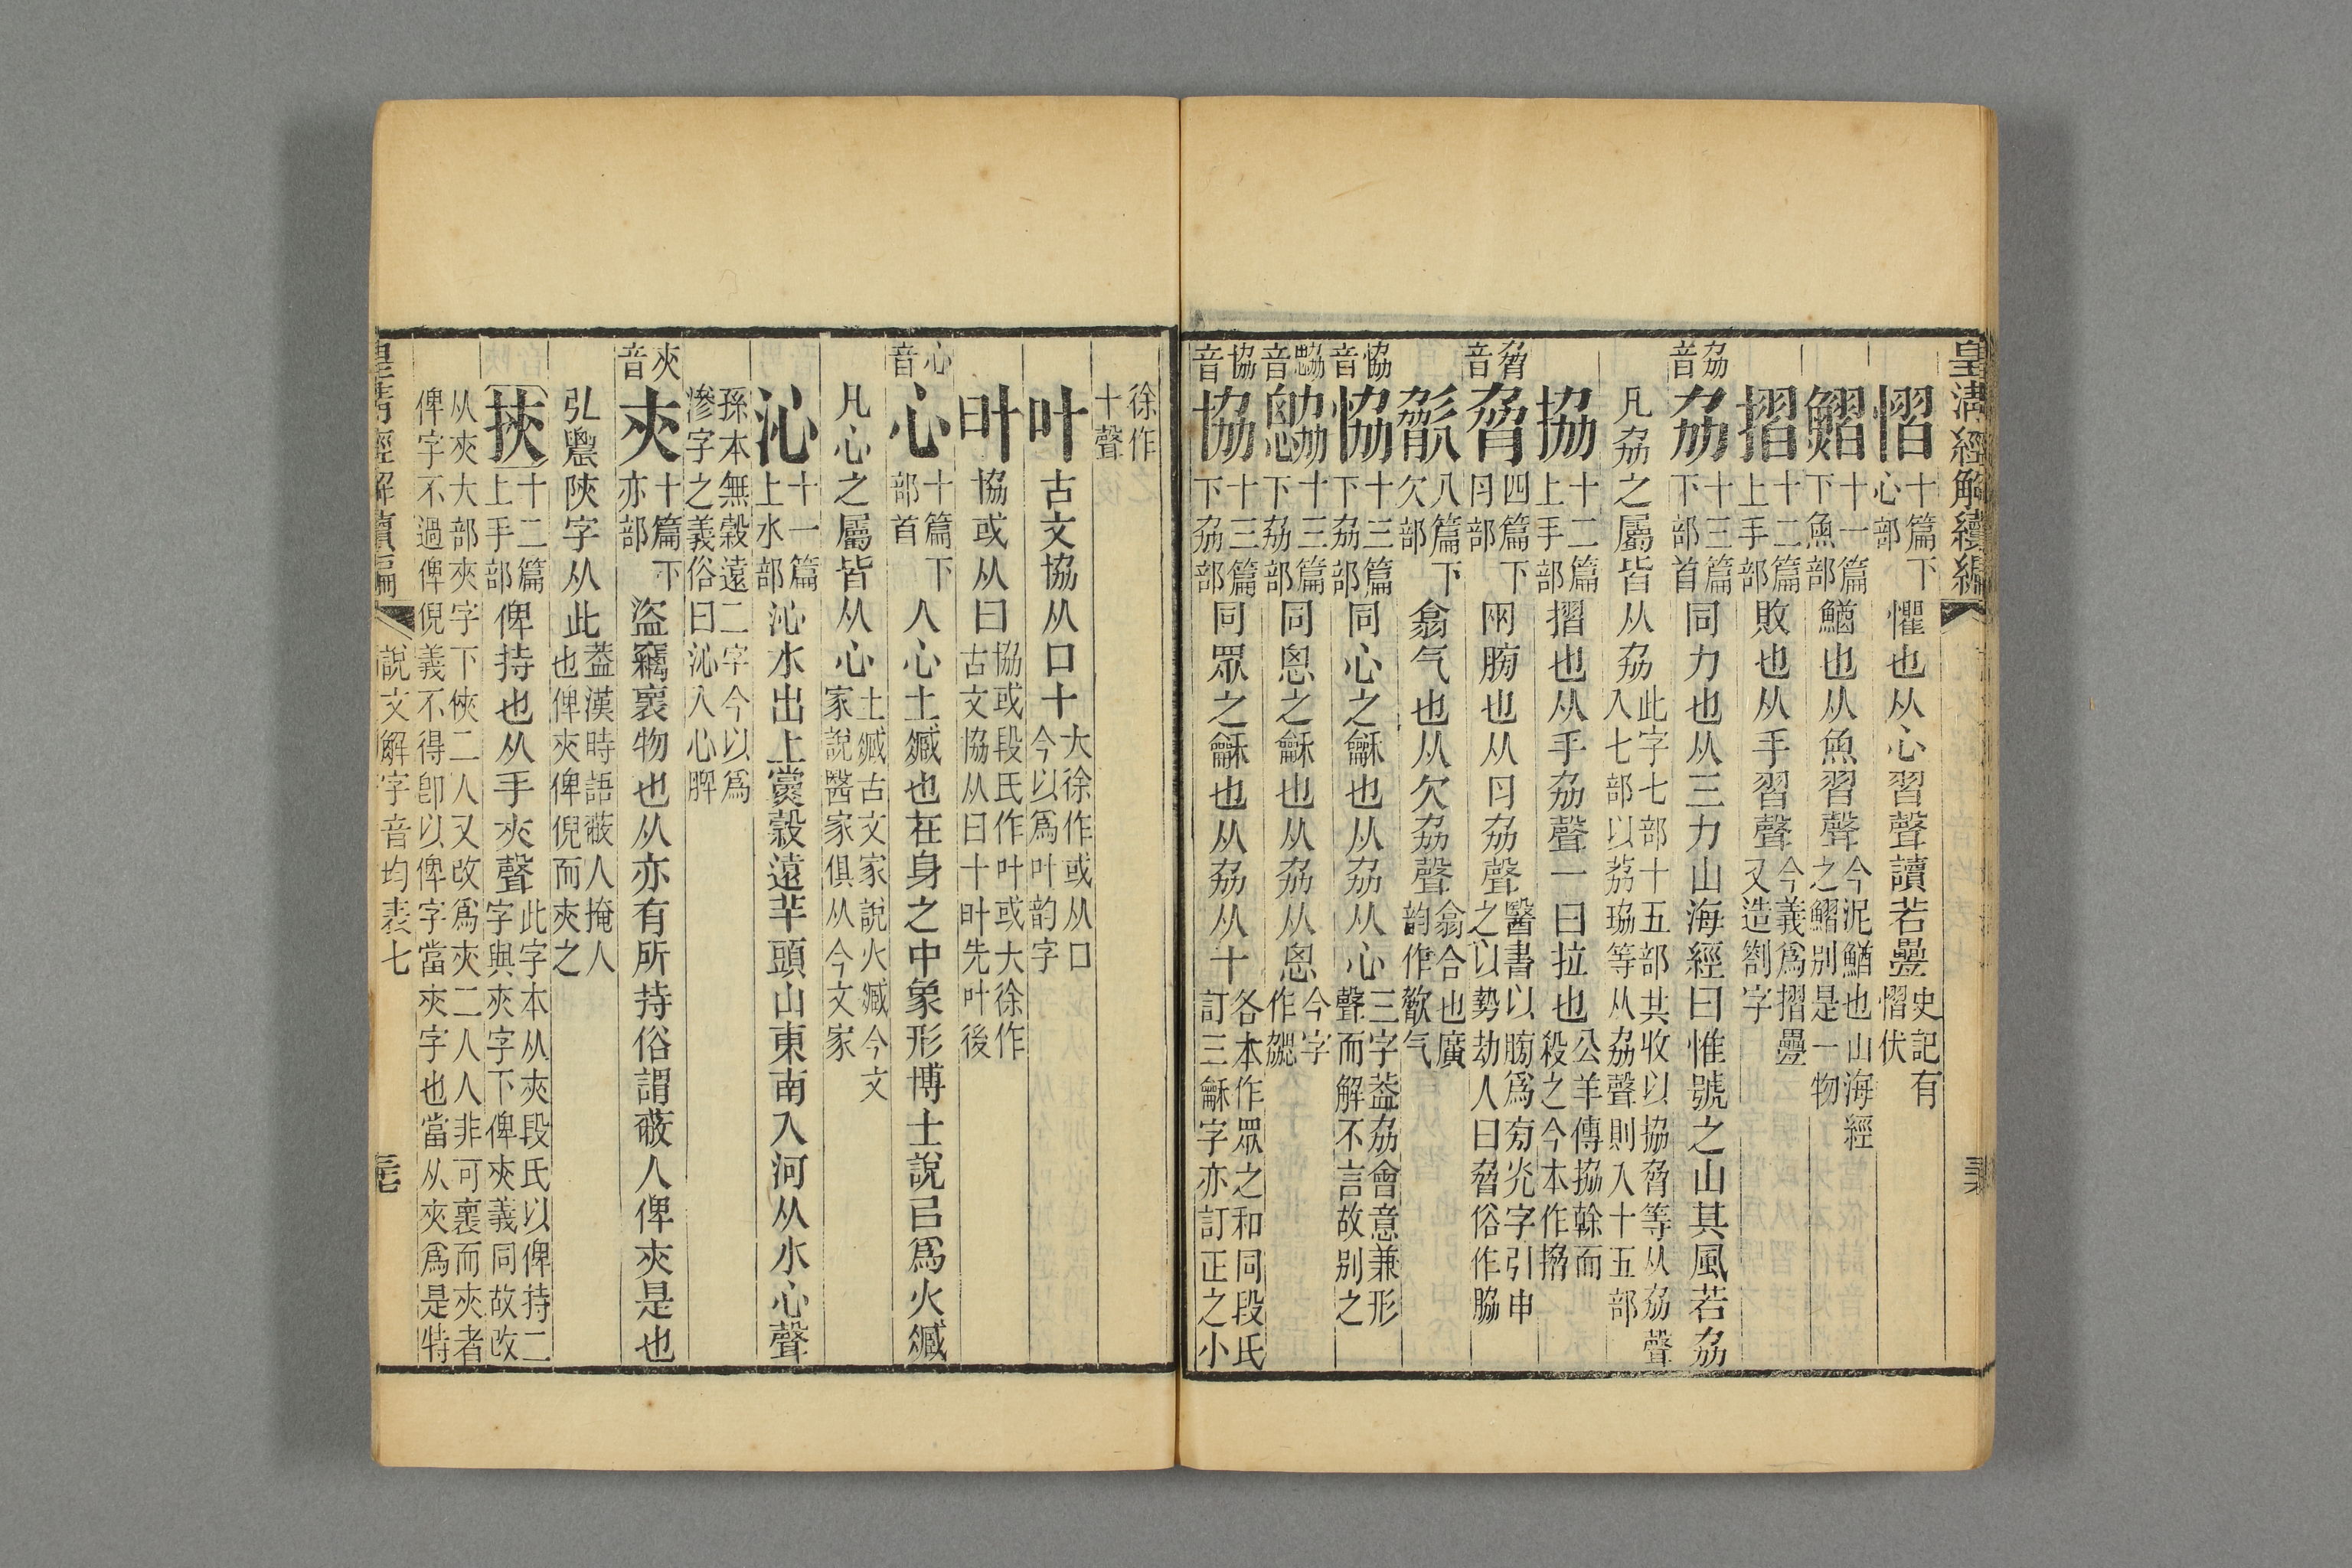 皇清經解續編
慴十篇下心部懼也从心習聲讀若疊史記有慴伏
鰼十一篇下魚部鰌也从魚習聲今泥鰌也山海經之鰼別是一物
摺十二篇上手部敗也从手習聲今義爲摺疊又造劄字
劦音劦十三篇下部首同力也从三力山海經曰惟號之山其風若劦
凡劦之屬皆从劦此字七部十五部共收以協脅等从劦聲入七部以荔珕等从劦聲則入十五部
拹十二篇上手部摺也从手劦聲一曰拉也公羊傳拹榦而殺之今本作搚
脅音脅四篇下⺼部兩膀也从⺼劦聲醫書以膀爲旁光字引申之以勢劫人曰脅俗作脇
歙八篇下欠部翕气也从欠劦聲翕合也廣韵作歙气
恊音恊十三篇下劦部同心之龢也从劦从心三字葢劦會意兼形聲而解不言故別之
勰音勰十三篇下劦部同恖之龢也从劦从恖今字作勰
協音協十三篇下劦部同眾之龢也从劦从十各本作眾之和同段氏訂三龢字亦訂正之小
徐作十聲
叶古文協从口十大徐作或从口今以爲叶韵字
旪協或从曰協或段氏作叶或大徐作古文協从曰十旪先叶後
心音心十篇下部首人心土臧也在身之中象形博士說㠯爲火臧
凡心之屬皆从心土臧古文家說火臧今文家說醫家俱从今文家
沁十一篇上水部沁水出上黨穀遠羊頭山東南入河从水心聲
孫本無穀遠二字今以爲滲字之義俗曰沁入心脾
㚒音㚒十篇下亦部盜竊褱物也从亦有所持俗謂蔽人俾㚒是也
弘農陝字从此葢漢時語蔽人掩人也俾㚒俾倪而㚒之
挾十二篇上手部俾持也从手㚒聲此字本从夾段氏以俾持二字與㚒字下俾㚒義同故改
从㚒大部夾字下俠二人又改爲夾二人人非可褱而夾者俾字不過俾倪義不得卽以俾字當㚒字也當从夾爲是特
皇清經解續編
說文解字音均表七